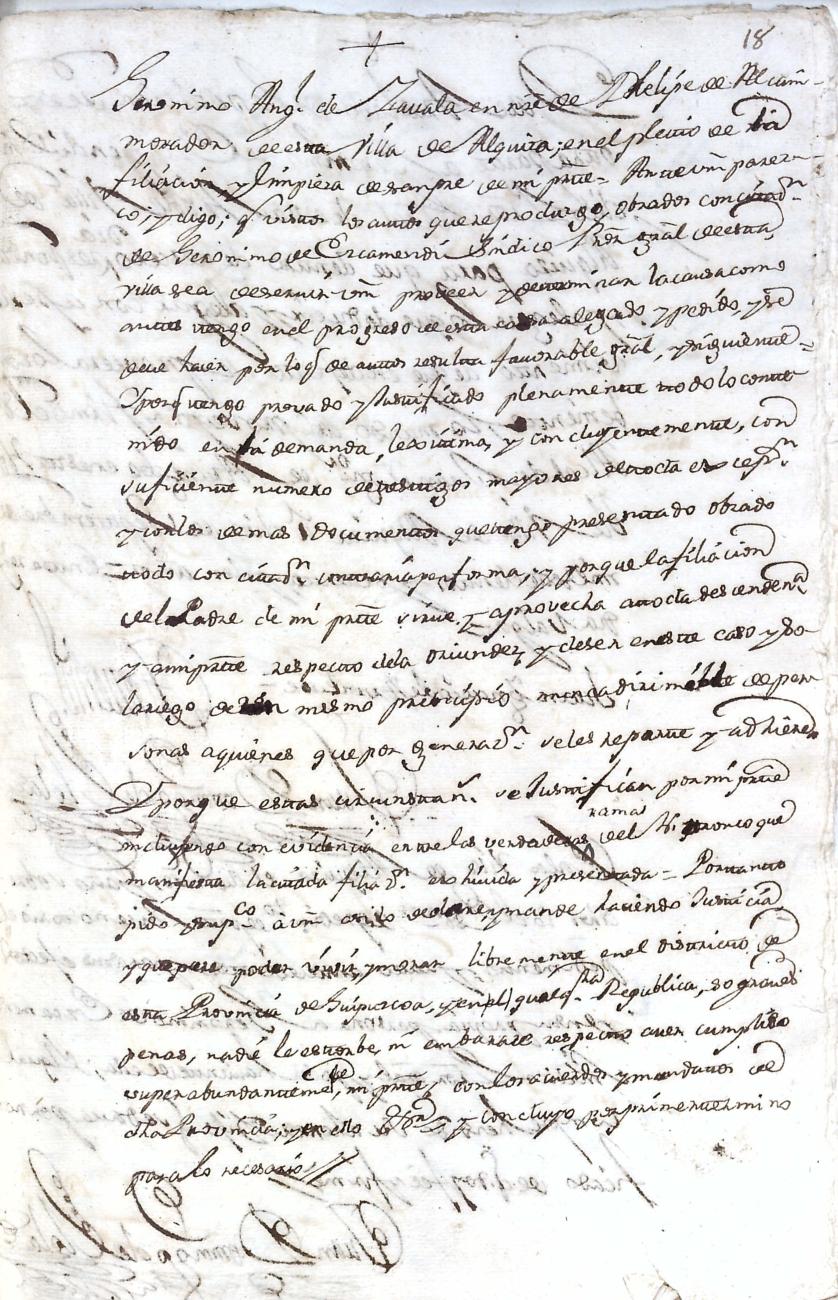 18
Geronimo Angl. de Zavala en nre de Phelipe de
morador de esta Villa de Alquiza; en el pleito de
filiación y limpieza de sangre de mi prte = Ante Vm parez-
co; y digo; q vistos los autos que reprodusgo, obrados con citazn
de Geronimo de Sindico Pror gral de esta
villa sea de servir Vm proveer y determinar la causa como
antes tengo en el progreso de esta causa alegado y pedido, y se
deve hazer por lo q de autos resulta favorable, gral, y siguiente =
Y porq tengo provado y Justificado plenamente todo lo conte
nido en la demanda, lexitima, y concluyentemente, con
suficiente numero de testigos mayores de toda excepzn
y con los demas Documentos que tengo presentado obrado
todo con citazn contraria en forma, y porque la filiacion
del Padre de mi prte sirve y aprovecha a toda descendena
y a mi prte respecto de la oriundez y deser en este caso y so-
lariego de un mismo principio nunca de per
sonas a quienes que por generazn se les reparte y adhiere
Y porque estas circunstans se Justifican por mi prte
incluyendo con evidencia entre las verdaderas ramas del tronco que
manifiesta la citada filiazn exhivida y presentada = Portanto
pido y supco a Vm asilo declare y mande haciendo Justicia
y que para poder vivir, y morar libremente en el districto de
esta Provincia de Guipuzcoa, y en qualqra Republica, so graves
penas, nadie le estorbe, ni embaraze respecto aver cumplido
superabundantemte de mi prte con los acuerdos y mandatos de
dha Provincia; y en ello y concluyo por primer termino
para lo necesario